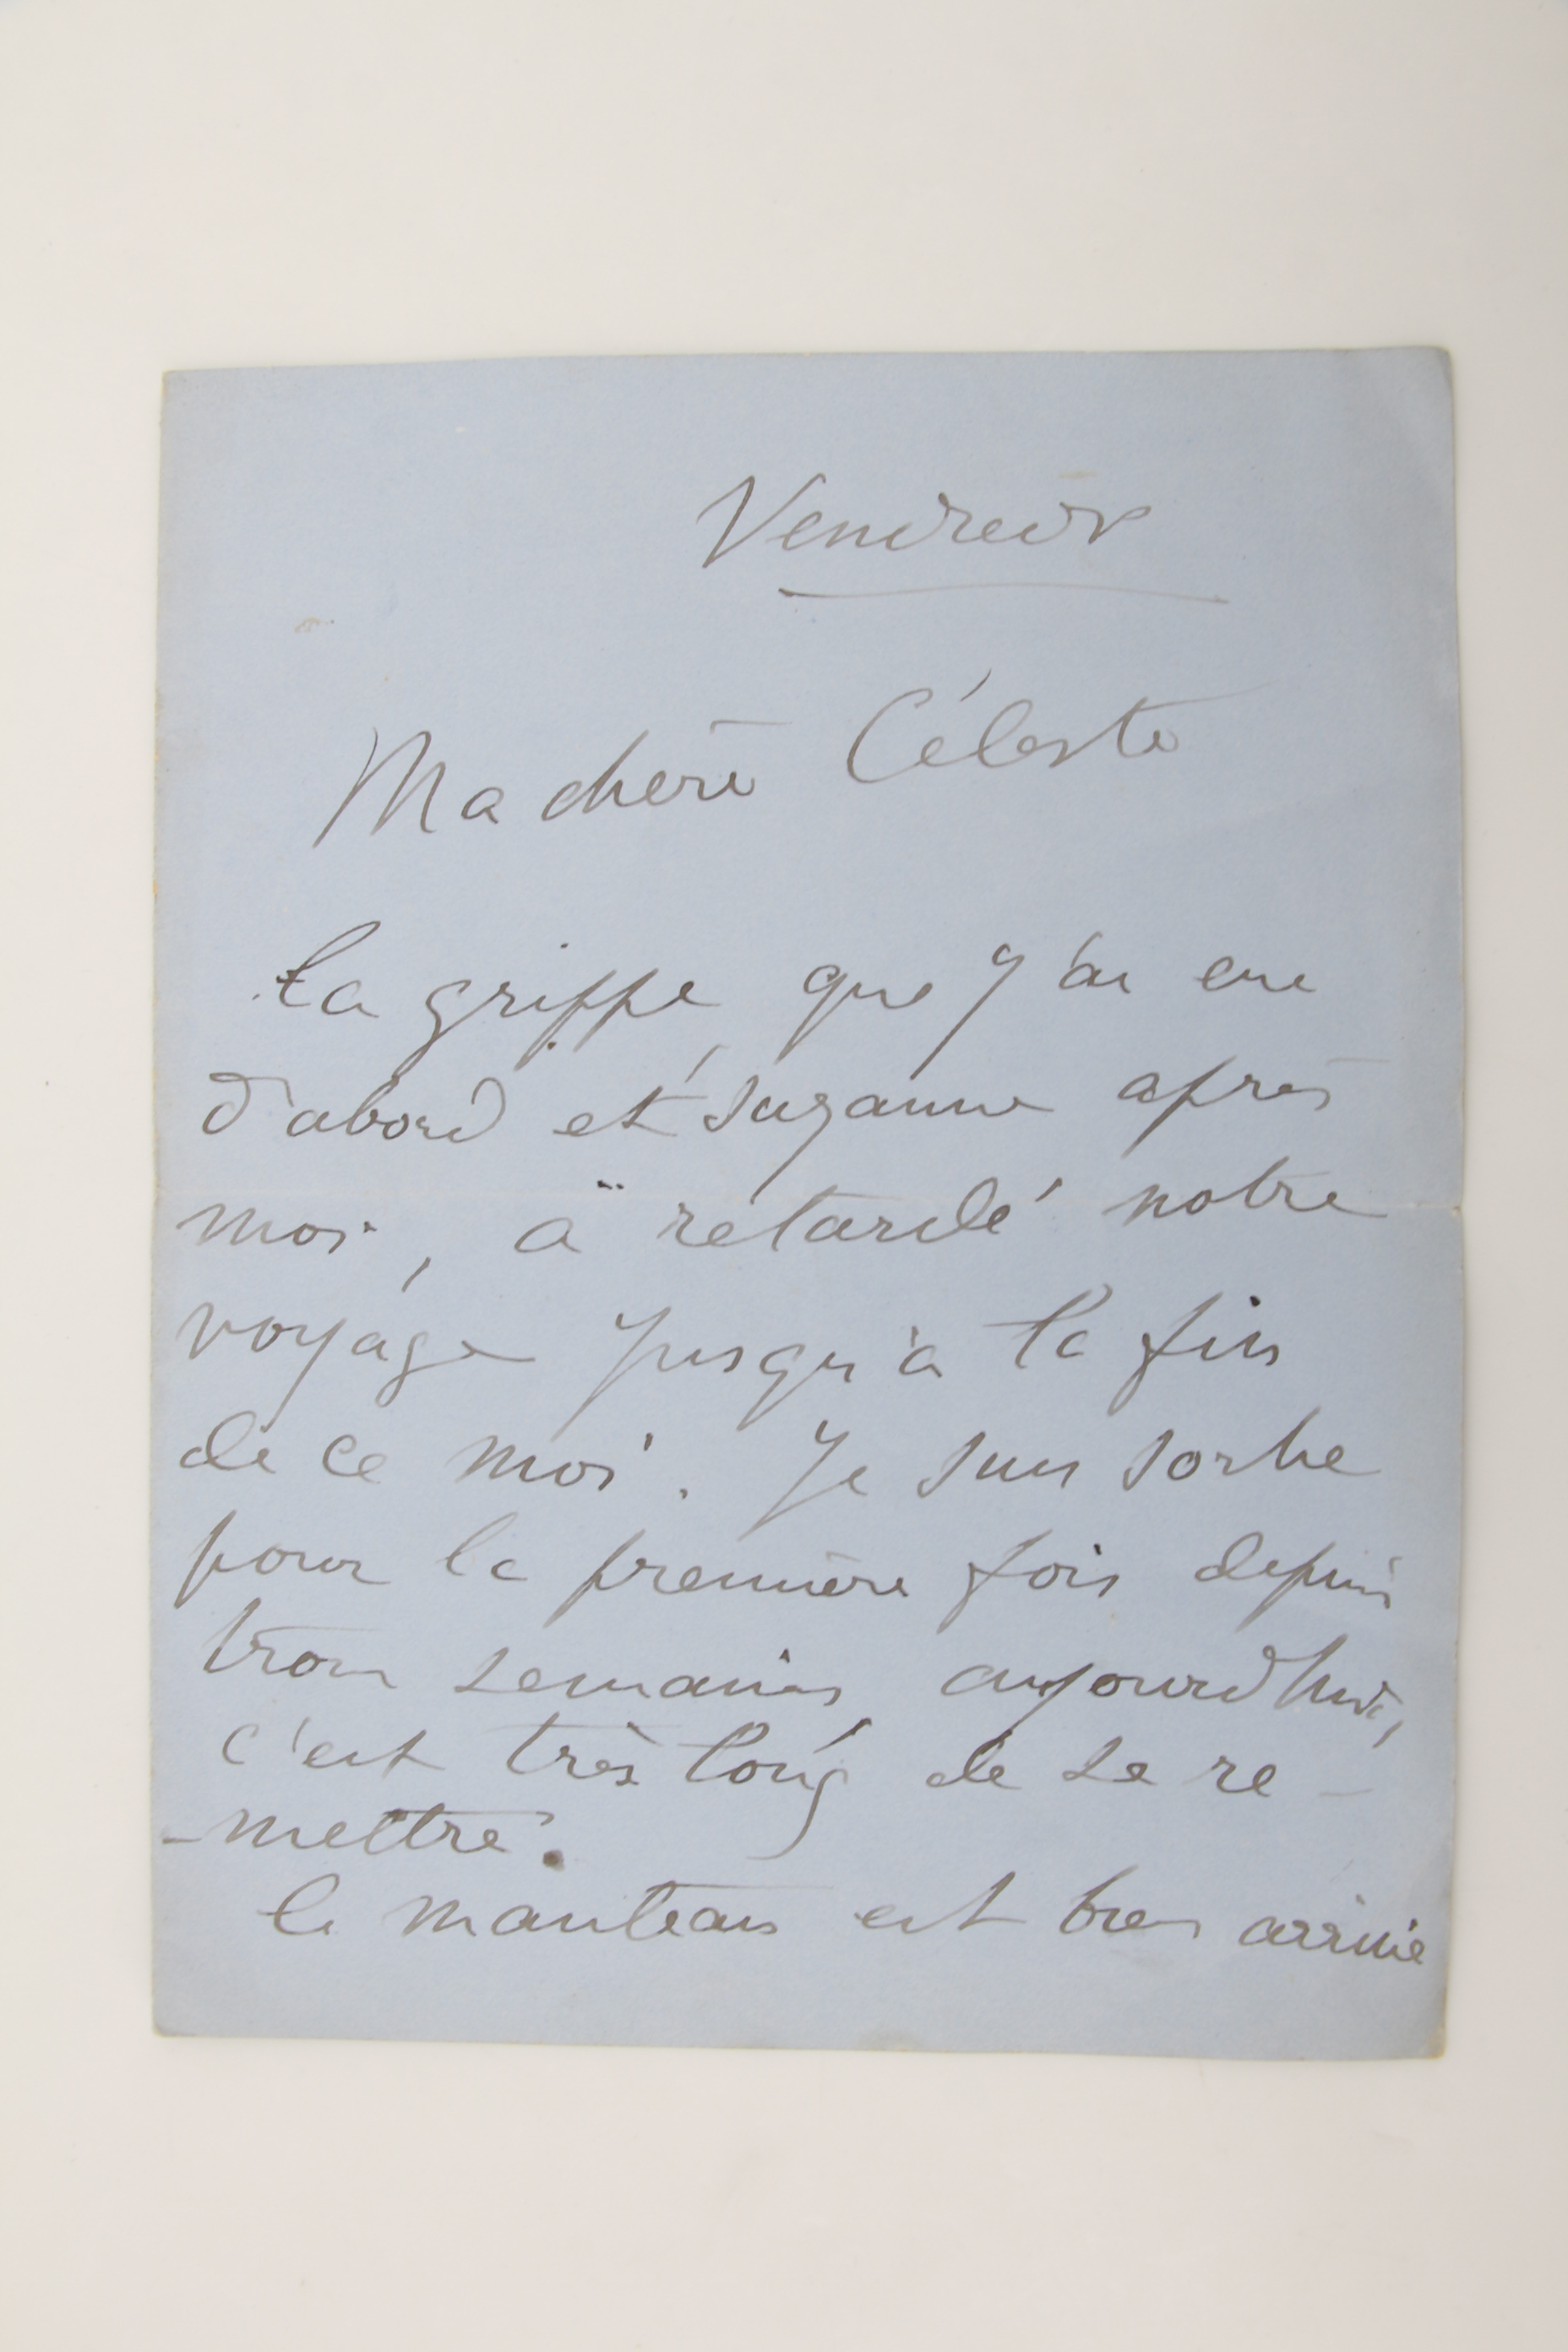 Vendredi
Ma chère Céleste
la grippe que j'ai eue
d'abord et Suzanne après
moi, a retardé notre
voyage jusqu'à la fin
de ce moi. Je suis sortie
pour la première fois depuis
trois semaines aujourd'hui,
c'est très long de se re-
-mettre.
le manteau est bien arrivé